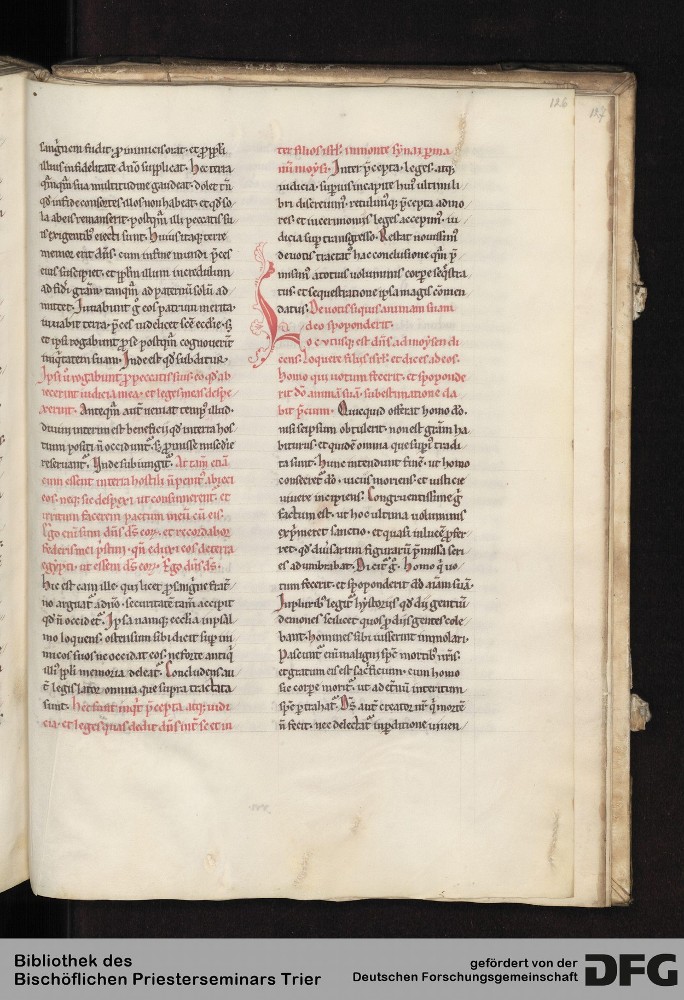 126
127
sanguinem fudit. p inimicis orat. et p ppli
illius infidelitate dno supplicat. Hec terra
qmqm sua multitudine gaudeat. dolet tn
qd infide consortes illos non habeat. et qd so
la ab eis remanserit. postqm illi peccatis su
is exigentib eiecti sunt. Huius itaq; terre
memor erit dns. cum in fine mundi pces
eius suscipiet. et pplm illum incredulum
ad fidei gram. tanqm ad paternum solu ad
mittet. Iuvabunt g eos patrum merita.
iuvabit terra. pces videlicet sce ecclie. s;
et ipsi rogabunt p se postqm cognoverint
iniqtatem suam. Inde est qd subditur.
Ipsi u rogabunt p peccatis suis. eo qd ab
iecerint iudicia mea. et leges meas despe
xerint. Anteqm aut veniat temp illud.
duum interim est beneficii qd inter hos
tium positi n occidunt. s; p
reservant. Unde subiungit. At tam etia
cum essent in terra hostili n penit abieci
eos. neq; sic despexi. ut consumerent. et
irritum facerem pactum meu cu eis.
Ego eni sum dns ds eor. et recordabor
federis mei pstini. qn eduxi eos de terra
egypti. ut essem ds eor. Ego dns ds.
Hic est cain ille. qui licet p sanguine frat
no arguat a dno. securitate tam accipit
qd n occidet. Ipsa namq; ecclia in psal
mo loquens. ostensum sibi dicit sup ini
micos suos ne occidat eos. ne forte antiq
illi ppli memoria deleat. Concludens au
t legislator omnia que supra tractata
sunt. Hec sunt inqt pcepta atq; iudi
cia. et leges quas dedit dns int se et in
ter filios isrl. in monte synai p ma
nu moysi. Inter pcepta. leges. atq;
iudicia. superius in capite hui ultimi li
bri discretum. retulimq; pcepta ad mo
res. et in cerimoniis leges accepim. iu
dicia sup transgresso. Restat novissim
devotis tractat hac conclusione qm p
missim a totius voluminis corpe seqstra
tus. et sequestratione ipsa magis comen
datus. De votis siquis animam suam
deo spoponderit.
Locutusq; est dns. ad moysen di
cens. Loquere filiis isrl. et dices ad eos.
Homo qui votum fecerit. et sponde
rit do anima sua. sub estimatione da
bit pcium. Quicquid offerat homo do.
nisi se ipsum obtulerit. non est gram ha
biturus. et quide omnia que superi tradi
ta sunt. hunc intendunt fine. ut homo
consecret do. viciis moriens. et iusticie
vivere incipiens. Congruentissime g
factum est. ut hoc ultima voluminis
exprimeret sanctio. et quasi in luce pfer
ret. qd diversarum figuraru pmissa seri
es adumbrabat. Dicit g. Homo q vo
tum fecerit. et spoponderit do aiam sua.
In plurib legit hystoriis. qd dii gentiu
demones seducet quos p diis gentes cole
bant. homines sibi iusserint immolari.
Pascunt eni maligni spc mortib nris.
et gratum eis est sacficium. cum homo
sic corpe morit. ut ad etnu interitum
spc ptrahat. Ds aut creator nr q morte
n fecit. nec delectat in pditione viven
Bibliothek des
Bischöflichen Priesterseminars Trier
gefördert von der
Deutschen Forschungsgemeinschaft
DFG